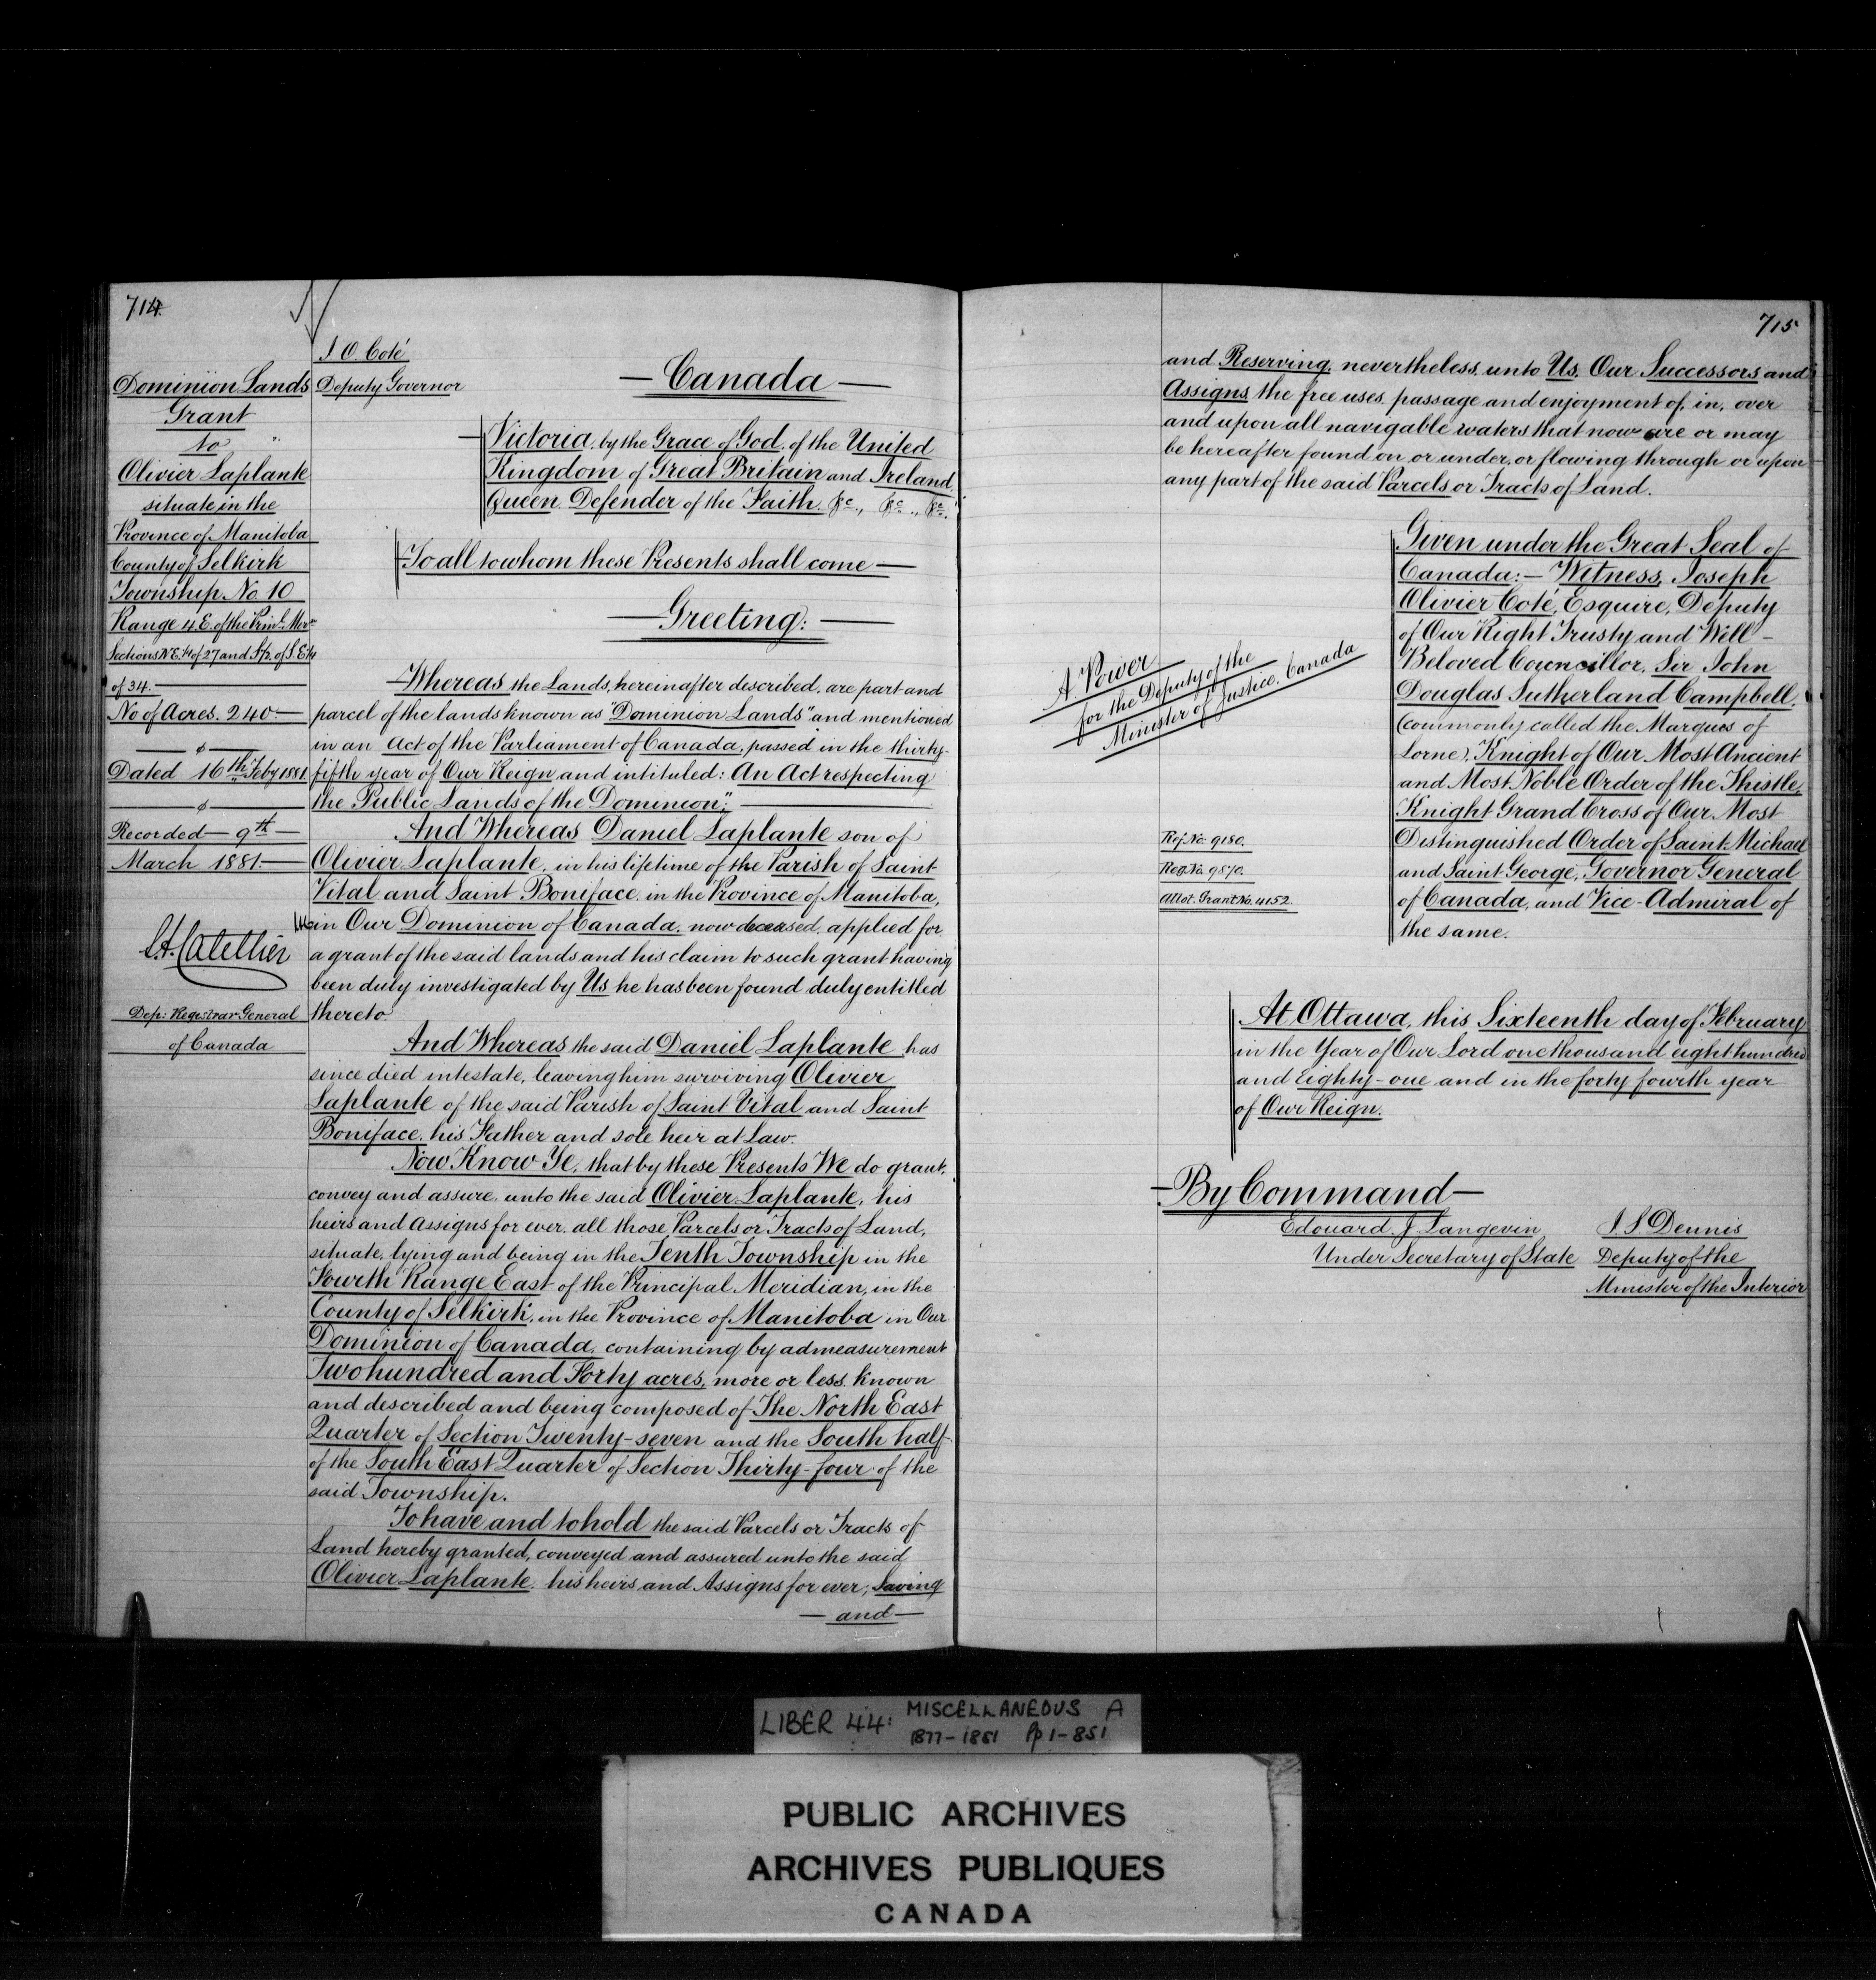 714
Dominion Lands
Grant
to
Olivier Laplante
situate in the
Province of Manitoba
County of Selkirk
Township No. 10
Range 4 E. of the Prinl. Mer.
Sections N.E. 1/4 of 27 and S 1/2 of S. E 1/4
of 34.
No of Acres. 240.
Dated 16th Feby 1881.
Recorded 9th
March 1881.
Dep: Registrar General
of Canada
J. O. Coté
Deputy Governor
Canada
Victoria, by the Grace of God, of the United
Kingdom of Great Britain and Ireland
Queen, Defender of the Faith, &c., &c., &c.
To all to whom these Presents shall come
Greeting:
Whereas the Lands, hereinafter described, are part and
parcel of the lands known as "Dominion Lands" and mentioned
in an Act of the Parliament of Canada, passed in the thirty-
fifth year of Our Reign and intituled: An Act respecting
the Public Lands of the Dominion;"
And Whereas Daniel Laplante son of
Olivier Laplante, in his lifetime of the Parish of Saint
Vital and Saint Boniface, in the Province of Manitoba,
in Our Dominion of Canada, now deceased, applied for
a grant of the said lands and his claim to such grant having
been duly investigated by Us he has been found duly entitled
thereto.
And Whereas the said Daniel Laplante has
since died intestate, leaving him surviving Olivier
Laplante of the said Parish of Saint Vital and Saint
Boniface, his Father and sole heir at Law.
Now Know Ye, that by these Presents We do grant,
convey and assure, unto the said Olivier Laplante, his
heirs and Assigns for ever, all those Parcels or Tracts of Land,
situate, lying and being in the Tenth Township in the
Fourth Range East of the Principal Meridian, in the
County of Selkirk, in the Province of Manitoba in Our
Dominion of Canada, containing by admeasurement
Two hundred and Forty acres, more or less, known
and described and being composed of The North East
Quarter of Section Twenty-seven and the South half
of the South East Quarter of Section Thirty-four of the
said Township.
To have and to hold the said Parcels or Tracts of
Land hereby granted, conveyed and assured unto the said
Olivier Laplante, his heirs and Assigns for ever; Saving
and
715
and Reserving, nevertheless, unto Us, Our Successors and
Assigns, the free uses, passage and enjoyment of, in, over
and upon all navigable waters that now are or may
be hereafter found on or under, or flowing through or upon
any part of the said Parcels or Tracts of Land.
Given under the Great Seal of
Canada:- Witness, Joseph
Olivier Coté, Esquire, Deputy
of Our Right Trusty and Well-
Beloved Councillor, Sir John
Douglas Sutherland Campbell,
(commonly called the Marquis of
Lorne), Knight of Our Most Ancient
and Most Noble Order of the Thistle,
Knight Grand Cross of Our Most
Distinguished Order of Saint Michael
and Saint George, Governor General
of Canada, and Vice-Admiral of
the same.
A. Power
for the Deputy of the
Minister of Justice, Canada
Ref. No. 9180.
Reg. No. 9870.
Allot. Grant No. 4152.
At Ottawa, this Sixteenth day of February
in the Year of Our Lord one thousand eight hundred
and Eighty-one and in the forty fourth year
of Our Reign.
By Command
Edouard. J. Langevin
Under Secretary of State
J. S. Dennis
Deputy of the
Minister of the Interior
LIBER 44: MISCELLANEOUS A
1877-1881 Pp 1-851
PUBLIC ARCHIVES
ARCHIVES PUBLIQUES
CANADA